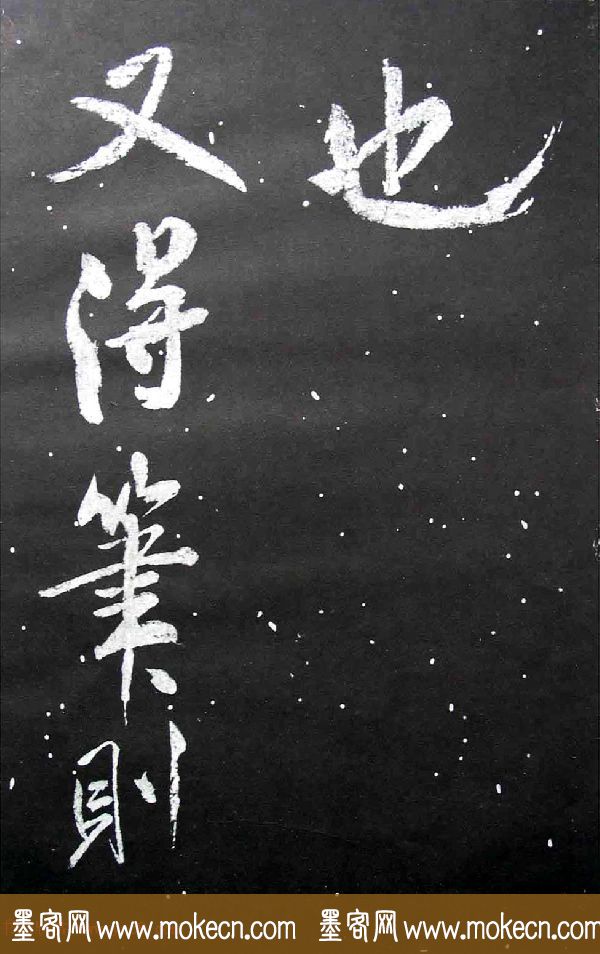 也
又得筆則
墨客网 www.mokecn.com 墨客网 www.mokecn.com